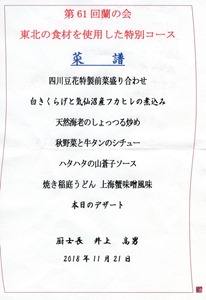 第61回蘭の会
東北の食材を使用した特別コース
菜　譜
四川豆花特製前菜盛り合わせ
白きくらげと気仙沼産フカヒレの煮込み
天然海老のしょっつる炒め
秋野菜と牛タンのシチュー
ハタハタの山蒼子ソース
焼き稲庭うどん 上海蟹味噌風味
本日のデザート
厨士長　井上　高男
2018年11月21日